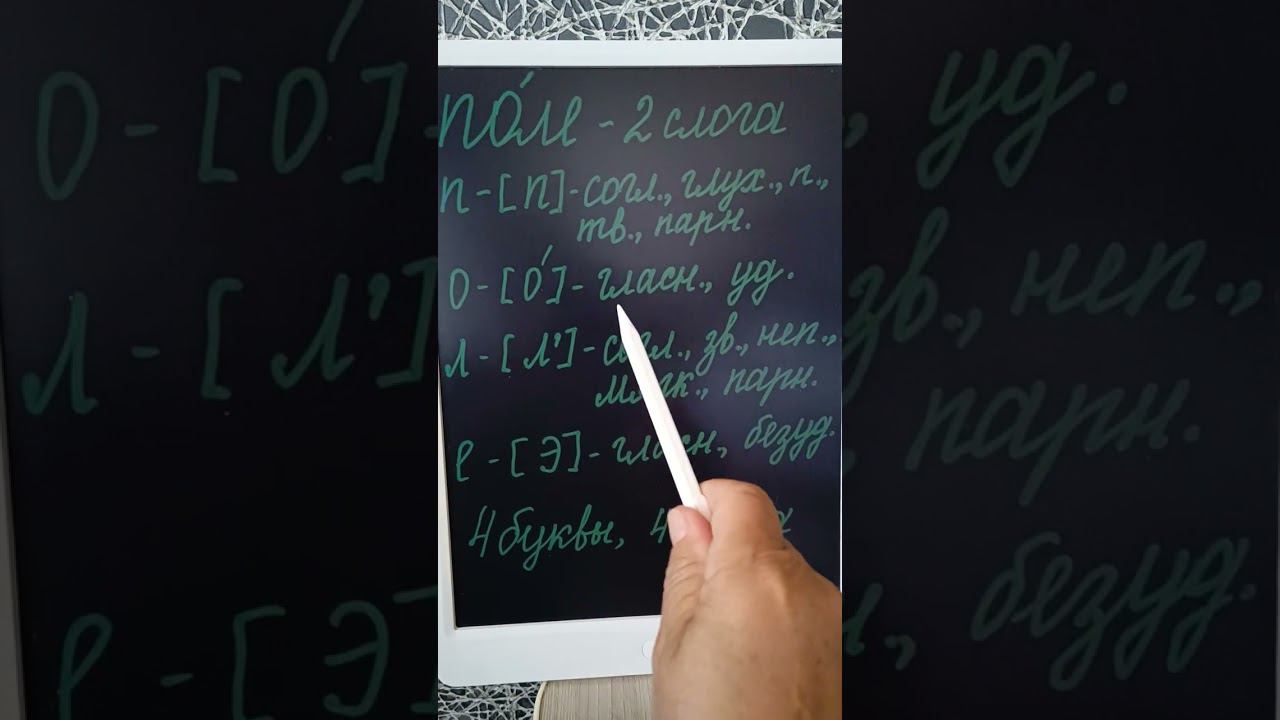 ПО́ЛЕ - 2 слога
п - [п] - согл., глух., п.,
тв., парн.
о - [о́] - гласн., уд.
л - [л'] - согл., зв., неп.,
мягк., парн.
е - [э] - гласн, безуд.
4 буквы, 4